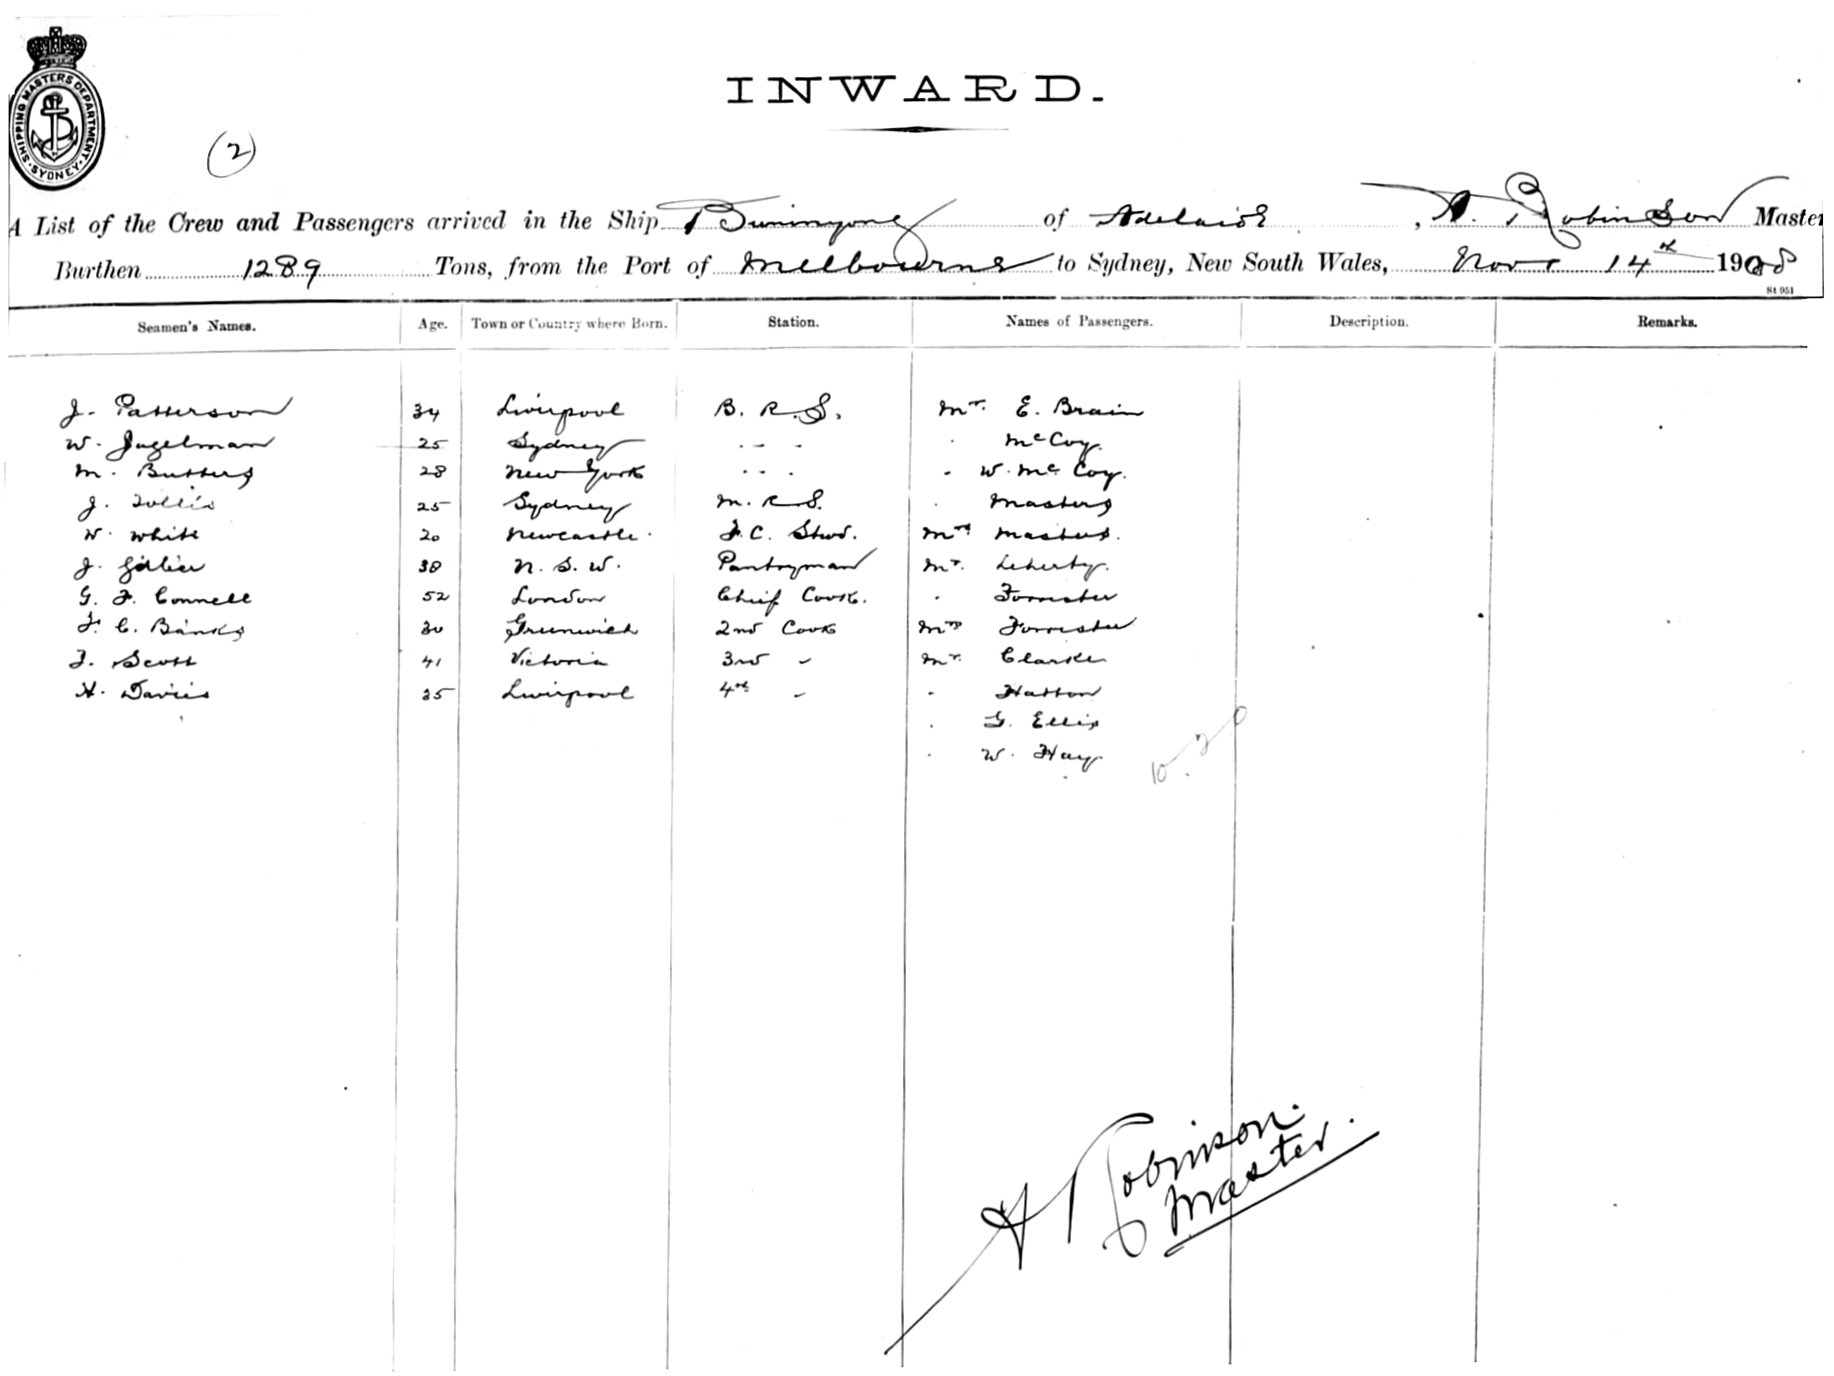 SHIPPING MASTERS DEPARTMENT. SYDNEY.
INWARD.
(2)
A List of the Crew and Passengers arrived in the Ship Buninyong of Adelaide, A. Robinson Master
Burthen 1289 Tons, from the Port of Melbourne to Sydney, New South Wales, Nov. 14th 1908
St 951
Seamen's Names. Age. Town or Country where Born. Station. Names of Passengers. Description. Remarks.
J. Patterson 34 Liverpool B. R. S. Mr. E. Brain
W. Jagelman 25 Sydney " " " " McCoy.
M. Butters 28 New York " " " " W. McCoy.
J. 25 Sydney M. R. S. " Masters
W. White 20 Newcastle. F. C. Stwd. Mrs Masters.
J. 38 N. S. W. Pantryman Mr. Leherty.
G. F. Connell 52 London Chief Cook. " Forrester
F. C. Banks 30 Greenwich 2nd Cook Mrs Forrester
J. Scott 41 Victoria 3rd " Mr. Clarke
H. Davies 25 Liverpool 4th " " Hatton
" G. Ellis
" W. Hay
A Robinson.
Master.